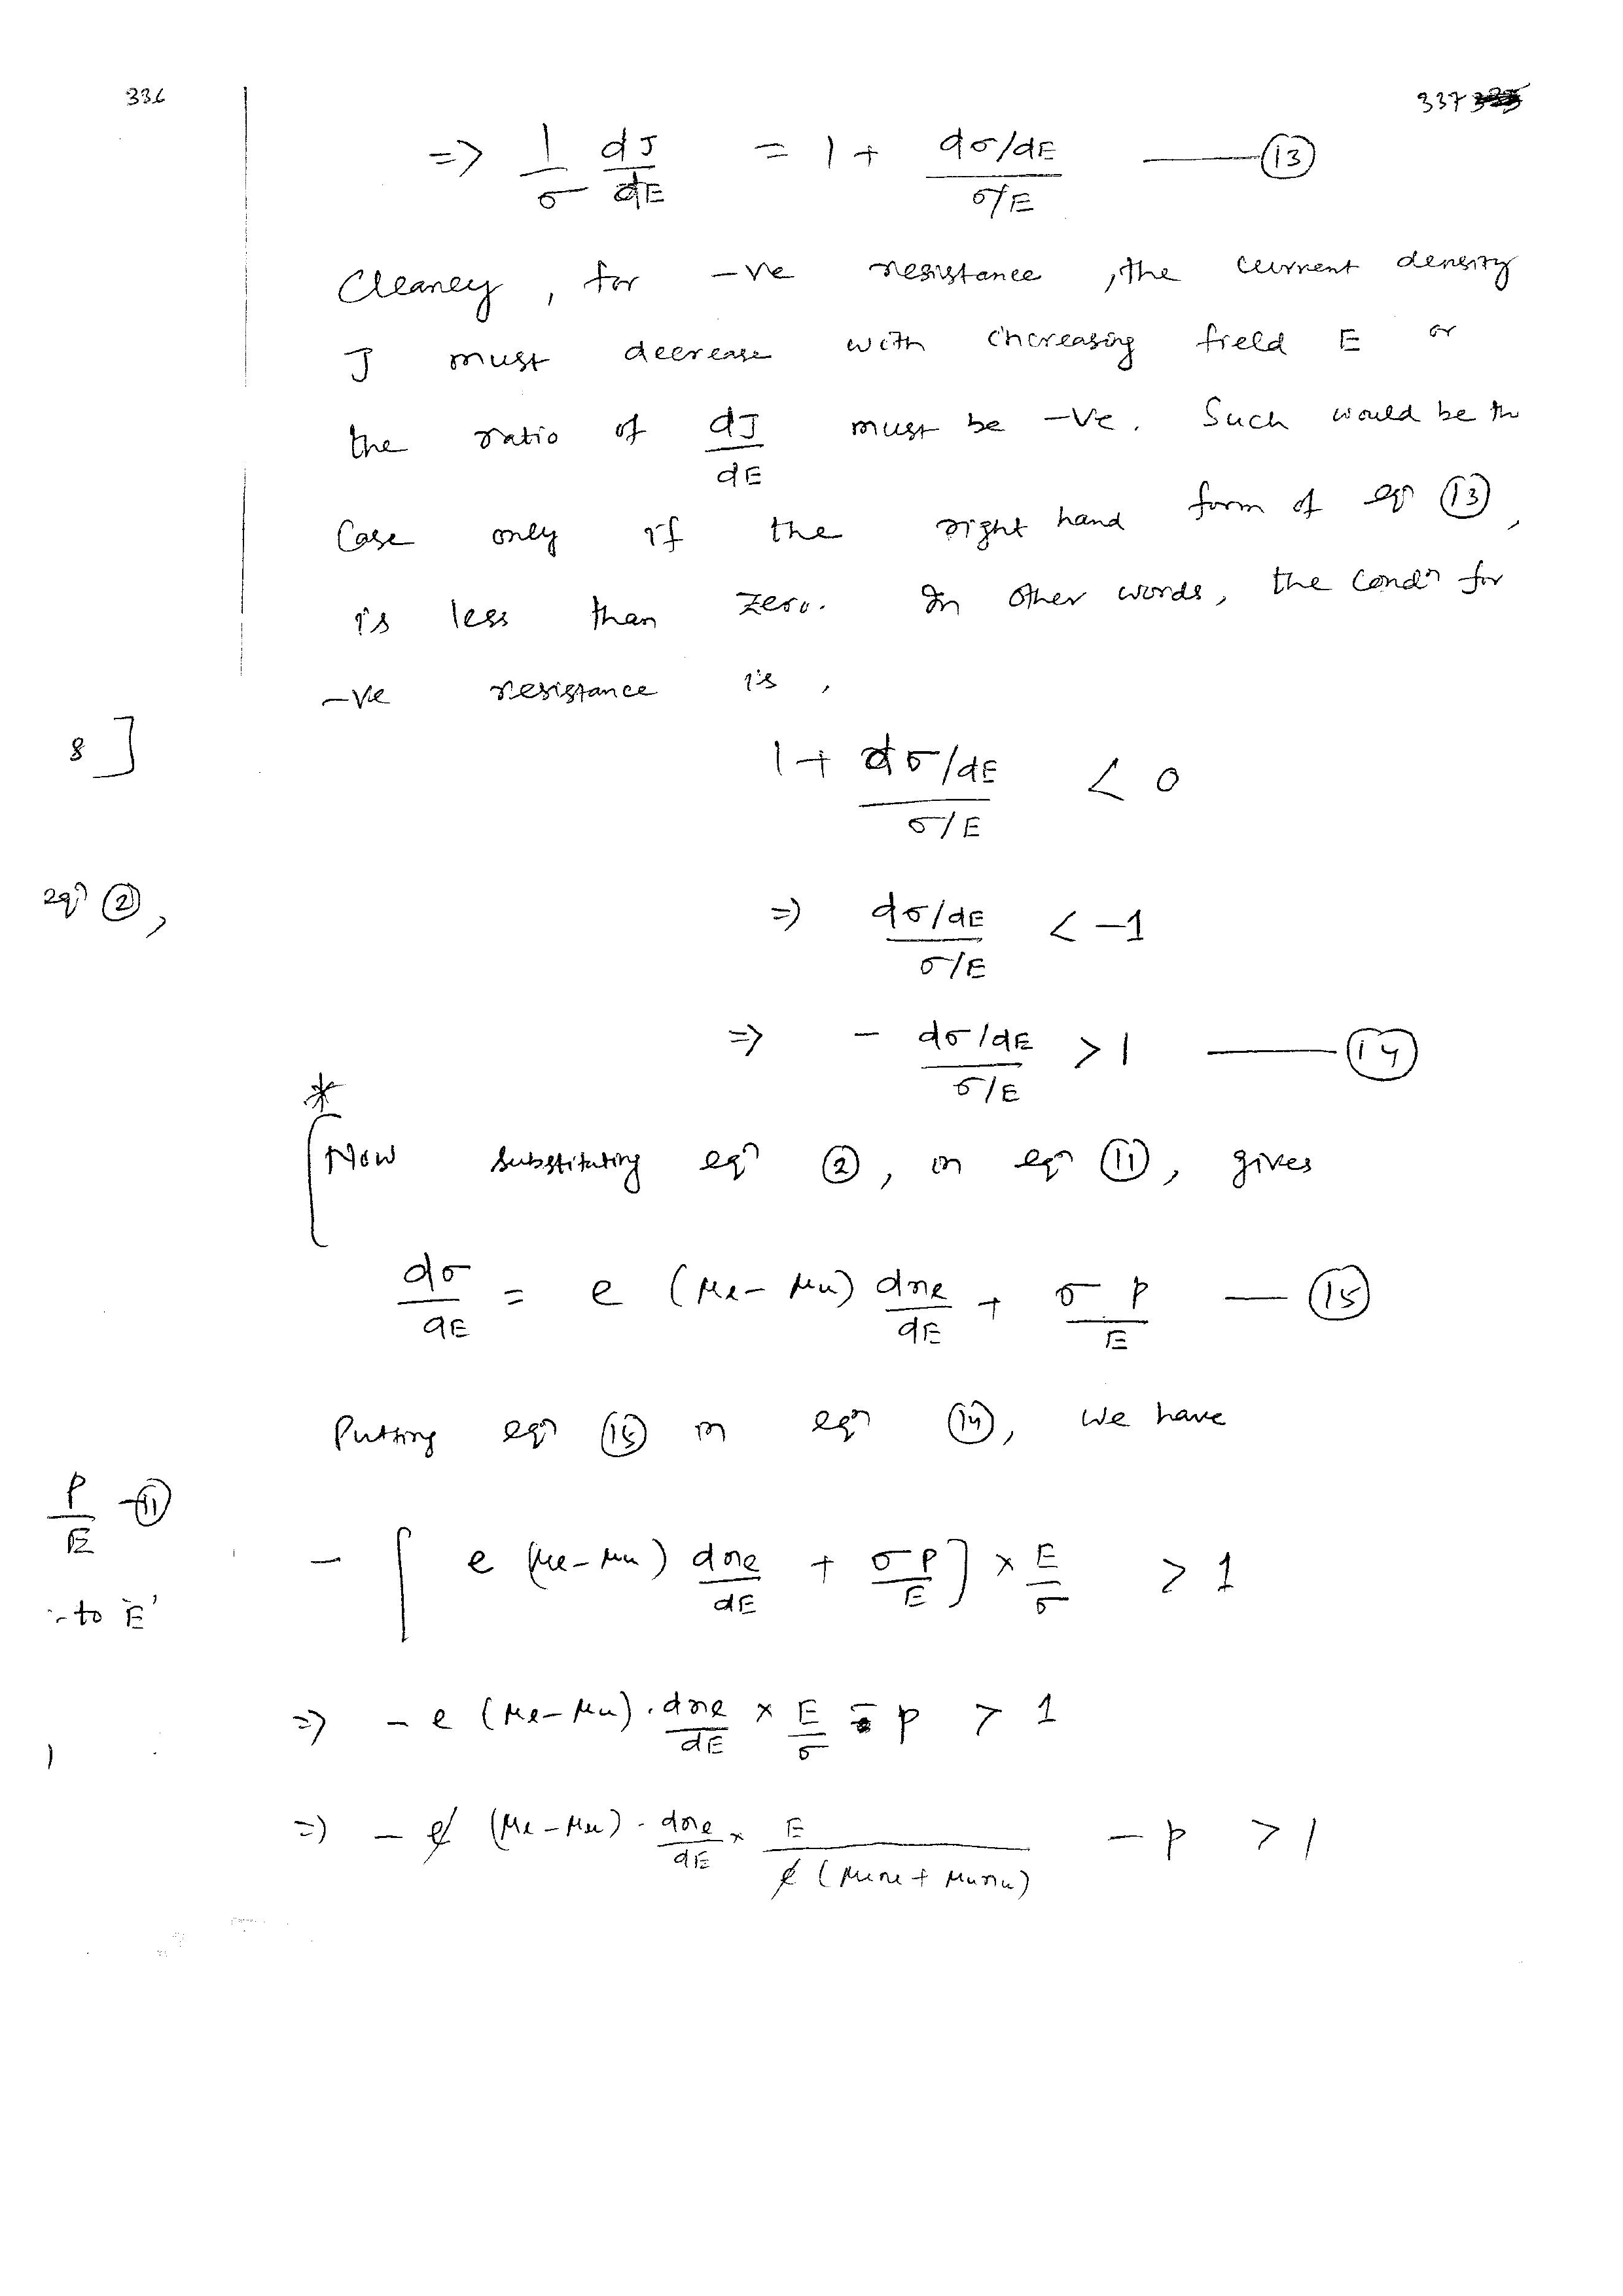 336
337
=> 1/σ dJ/dE = 1 + (dσ/dE)/(σ/E) —— (13)
Clearly, for -ve resistance, the current density
J must decrease with increasing field E or
the ratio of dJ/dE must be -ve. Such would be the
case only if the right hand form of eqn (13),
is less than zero. In other words, the condn for
-ve resistance is,
8 ]
1 + (dσ/dE)/(σ/E) < 0
eqn (2),
=> (dσ/dE)/(σ/E) < -1
=> - (dσ/dE)/(σ/E) > 1 —— (14)
*
[Now substituting eqn (2), in eqn (11), gives
dσ/dE = e (μl - μu) dnl/dE + σP/E — (15)
Putting eqn (15) in eqn (14), we have
P/E — (11)
- [ e (μl - μu) dnl/dE + σP/E ] × E/σ > 1
to 'E'
=> - e (μl - μu) . dnl/dE × E/σ - P > 1
=> - e (μl - μu) . dnl/dE × E/(e (μl nl + μu nu)) - P > 1